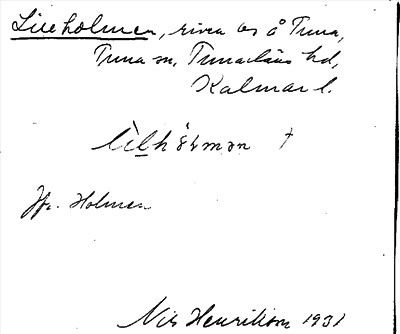 Lilleholmen, riven bs å Tuna,
Tuna sn, Tunaläns hd,
Kalmar l.
lìlhólmən †
Jfr. Holmen
Nils Henrikson 1931